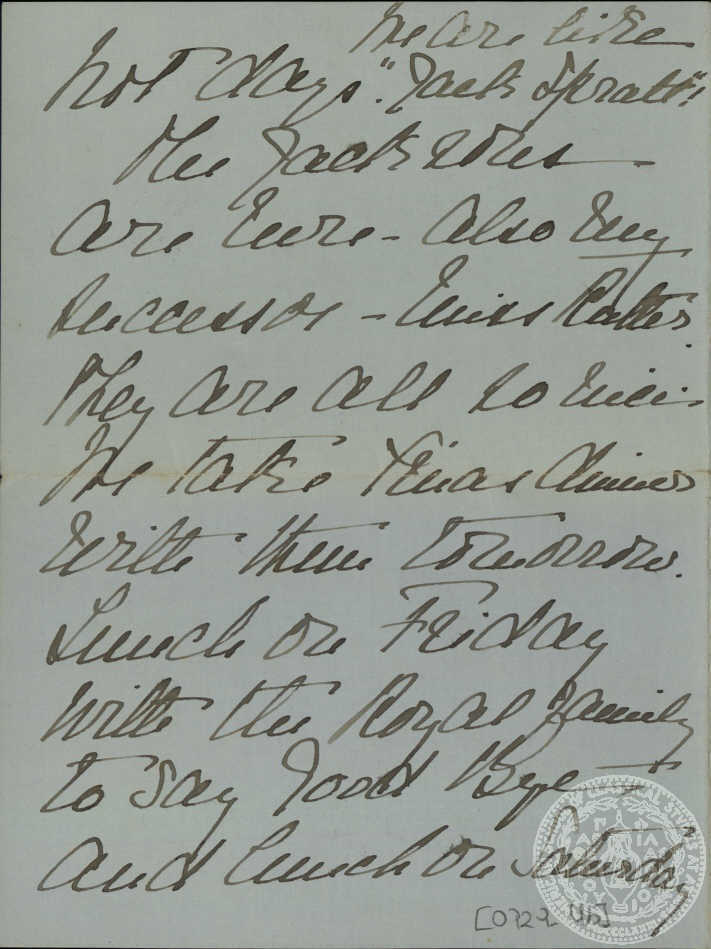 We are like
hot days. "Jack Spratt"!
The Jacksons —
are here - also my
successor - Miss
They are all so nice.
We take Xmas dinner
with them tomorrow.
Lunch on Friday
with the Royal family
to say Good Bye —
and lunch on Saturday
[0722 4b]